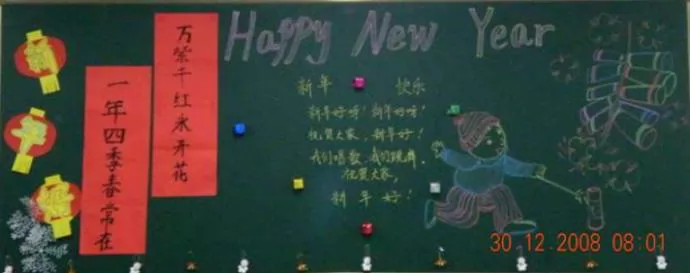 Happy New Year
万紫千红永开花
一年四季春常在
新年 快乐
新年好呀!新年好呀!
祝贺大家,新年好!
我们唱歌,我们跳舞,
祝贺大家,
新年好!
30.12.2008 08:01